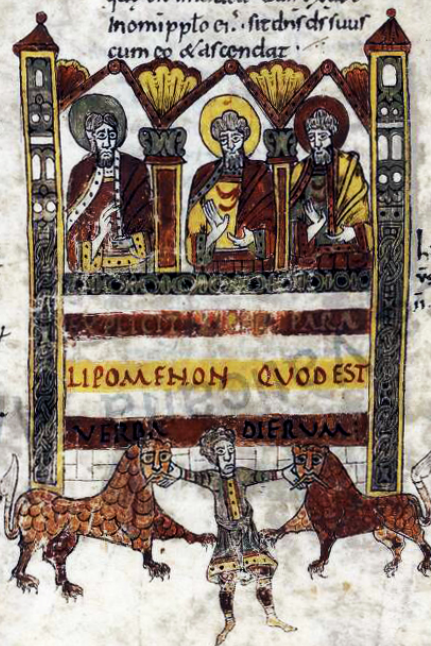 in omi pplo ei. sit dns ds suus
cum eo & ascendat.
EXPLICIT VERBA PARA
LIPOMENON QUOD EST
VERBA DIERUM: